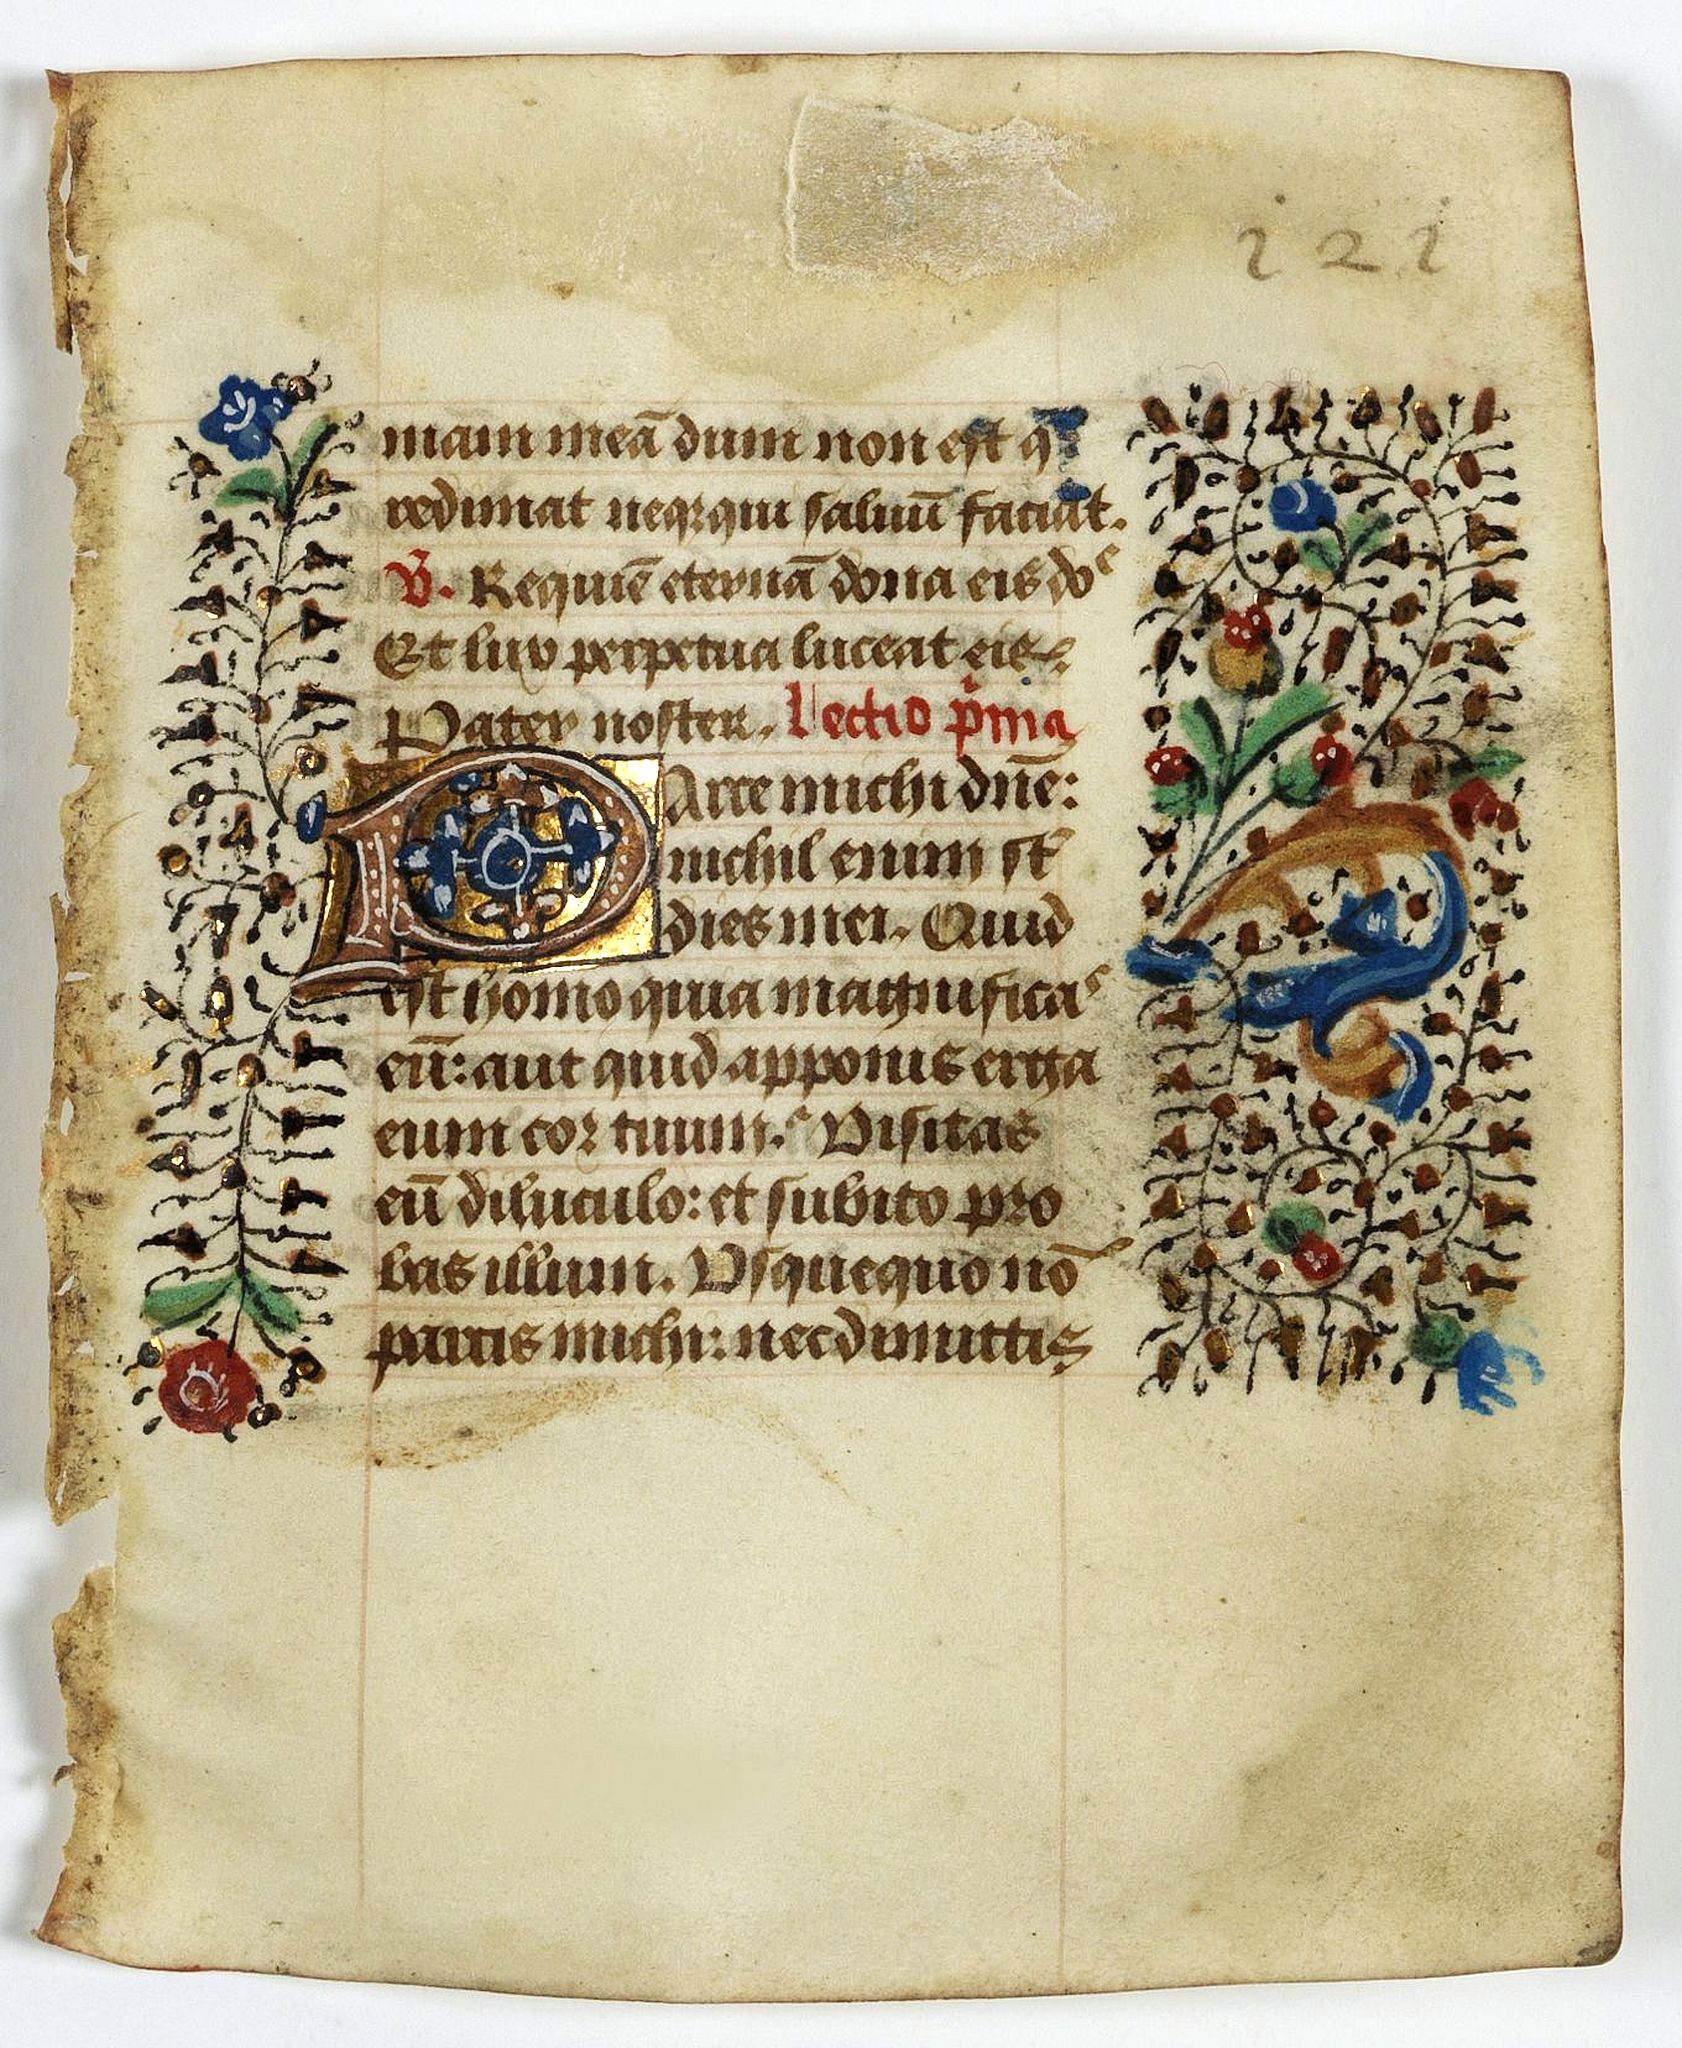 221
mam meā dum non est q
redimat neqꝫ qui saluū faciat.
V̄. Requiē eternā dona eis do᷒
Et lux perpetua luceat eis.
Pater noster. Lectio p̄ma
Parce michi dn̄e:
nichil enim st̄
dies mei. Quid
est homo quia magnifica᷒
eū: aut quid apponis erga
eum cor tuum. Visitas
eū diluculo: et subito pro
bas illum. Vsquequo nō
parcis michi: nec dimittis